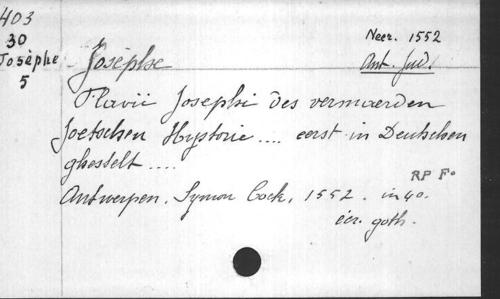 403
30
Josèphe
5
Josèphe
Neer. 1552
Ant. Jud.
Flavii Josephi des vermaerden
Joetschen Hystorie .... eerst in Deutschen
ghestelt ....
RP Fo
Antwerpen. Symon Cock, 1552. in 4o.
écr. goth.